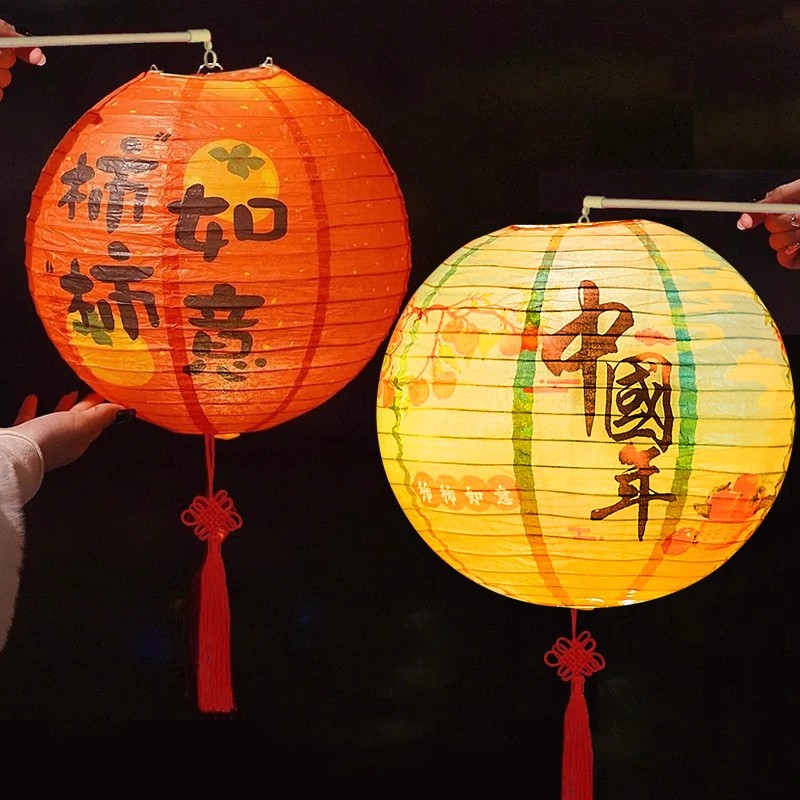 柿柿
如意
中國年
柿柿如意